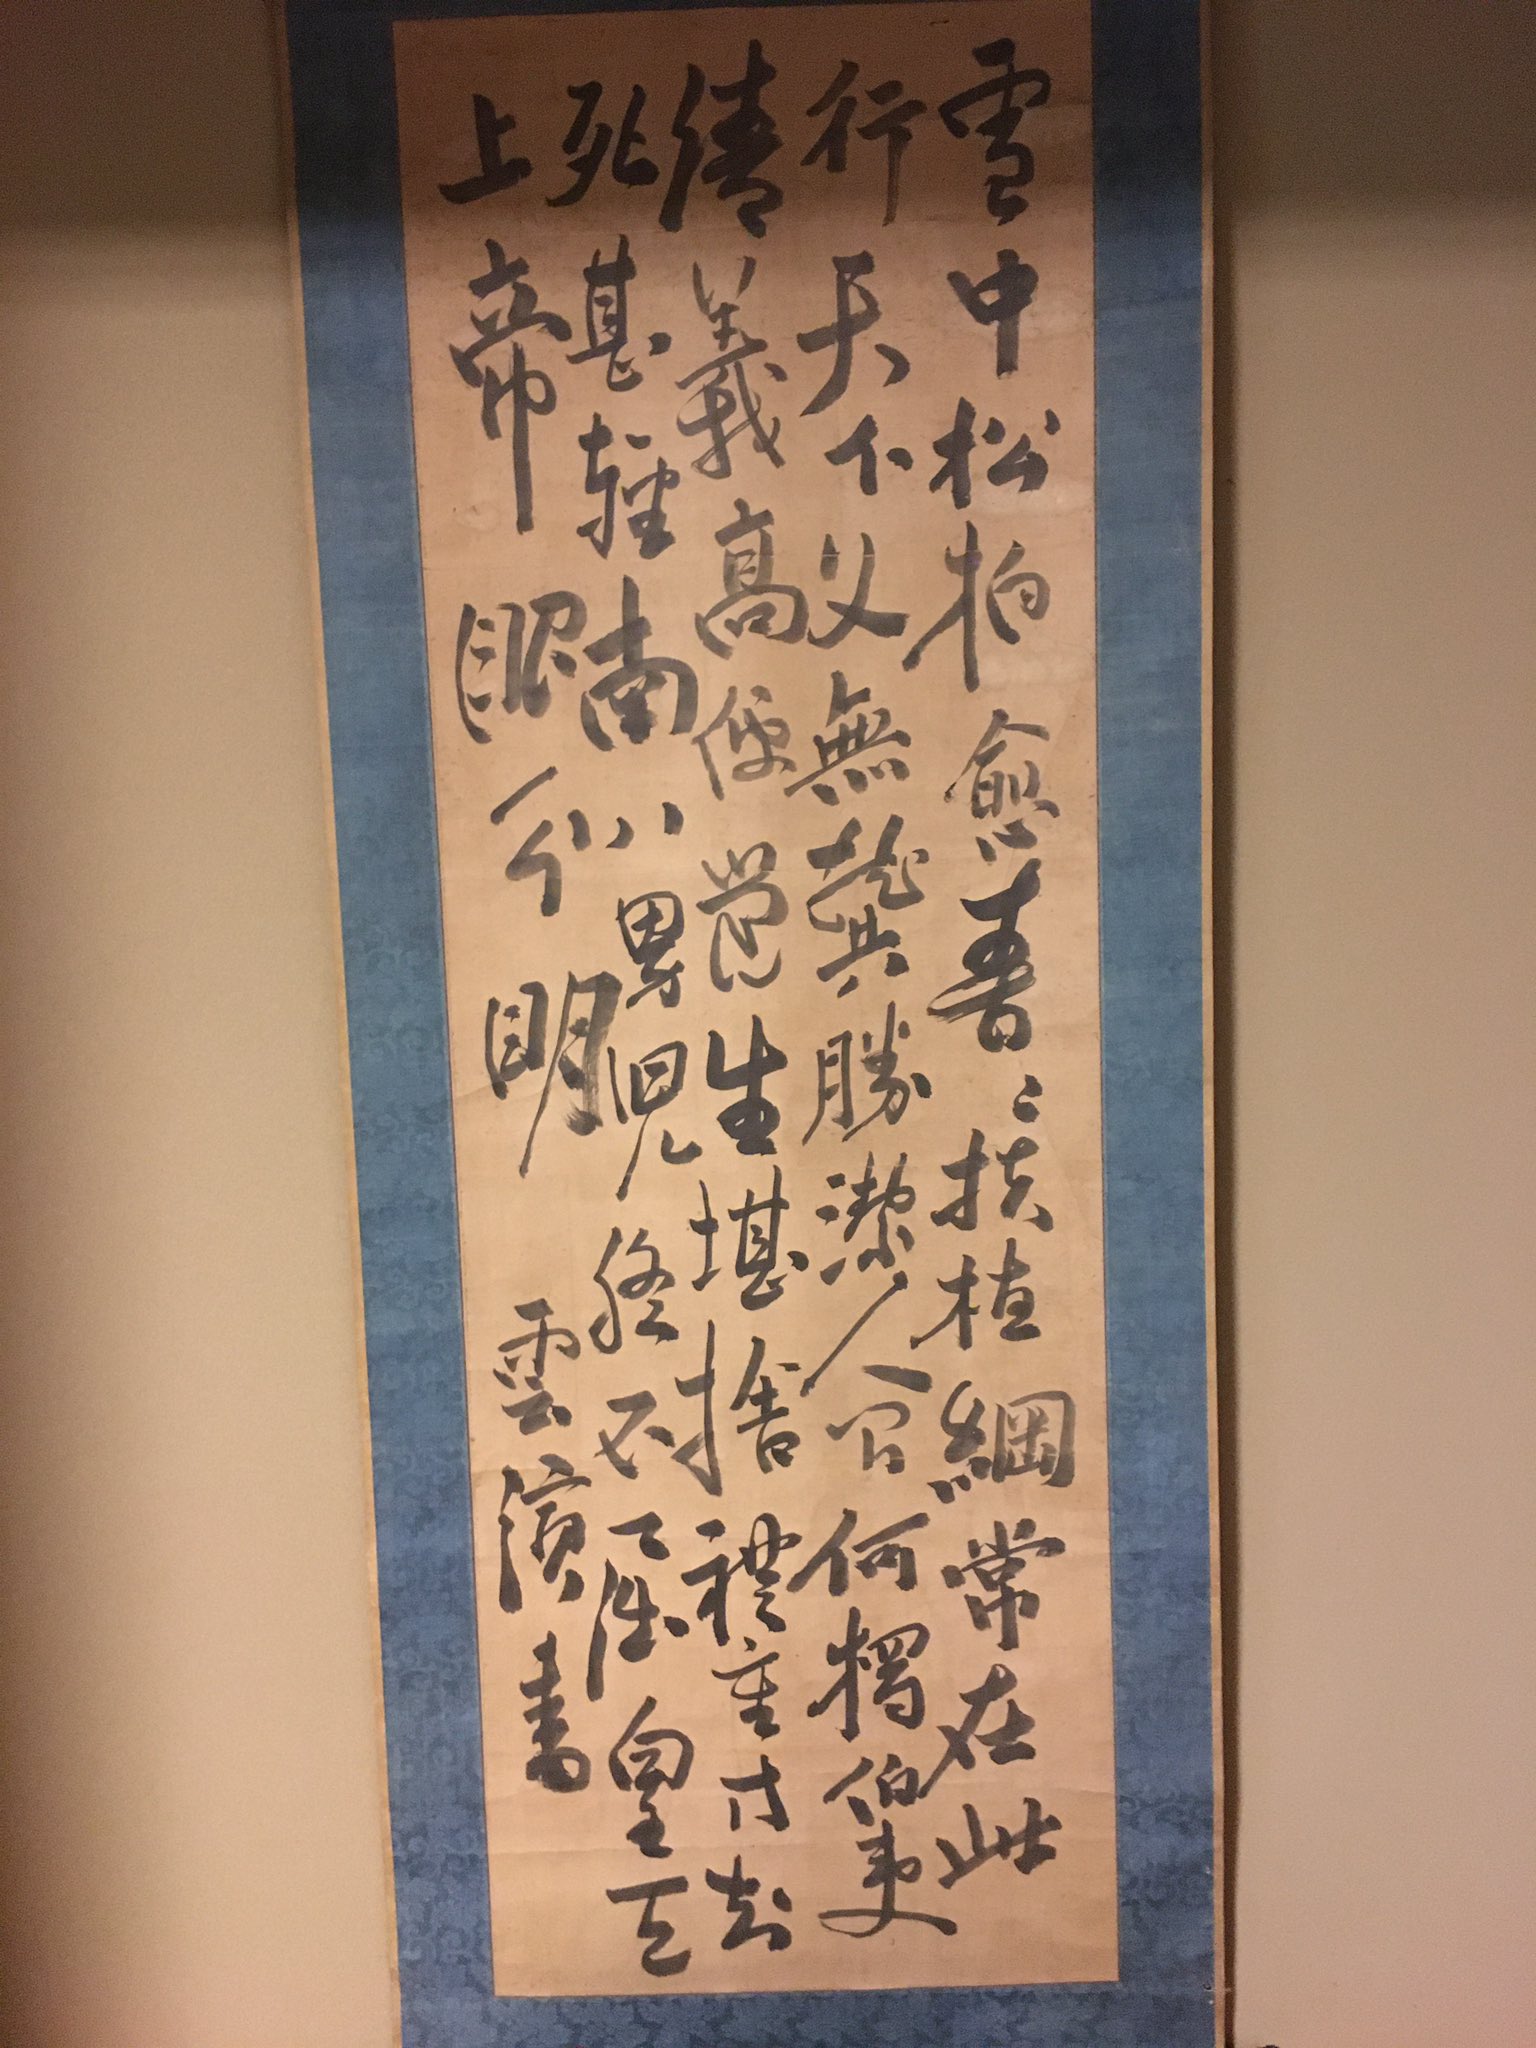 雪中松柏愈青々扶植綱常在此
行天下久無龔勝潔人間何獨伯夷
清義高便覺生堪捨禮重方知
死甚輕南八男兒終不屈皇天
上帝眼分明 雲濱書